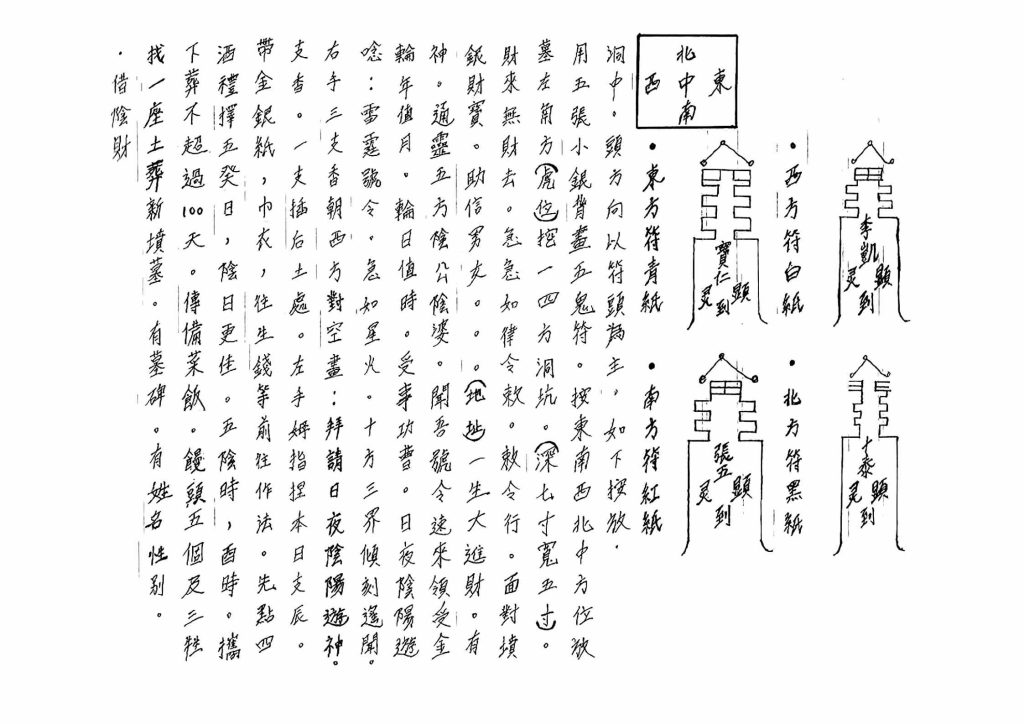 ·借陰財
找一座土葬新墳墓。有墓碑。有姓名性别。
下葬不超過100天。傳備菜飯。饅頭五個及三牲
酒禮擇五癸日，陰日更佳。五陰時，酉時。攜
帶金銀紙，巾衣，往生錢等前往作法。先點四
支香。一支插后土處。左手姆指捏本日支辰。
右手三支香朝西方對空畫：拜請日夜陰陽遊神。
唸：雷霆號令。急如星火。十方三界傾刻遙聞。
輪年值月。輪日值時。受事功曹。日夜陰陽遊
神。通靈五方陰公陰婆。聞吾號令速來領受金
銀財寶。助信男女。。。(地址)一生大進財。有
財來無財去。急急如律令敕。敕令行。面對墳
墓左角方(虎位)挖一四方洞坑。(深七寸寬五寸)。
用五張小銀背畫五鬼符。按東南西北中方位放
洞中。頭方向以符頭為主。如下按放．
北
西中東
南
•東方符青紙
寶仁
灵到顯
•南方符紅紙
張五
灵到顯
•西方符白紙
李凱
灵到顯
•北方符黑紙
泰
灵到顯